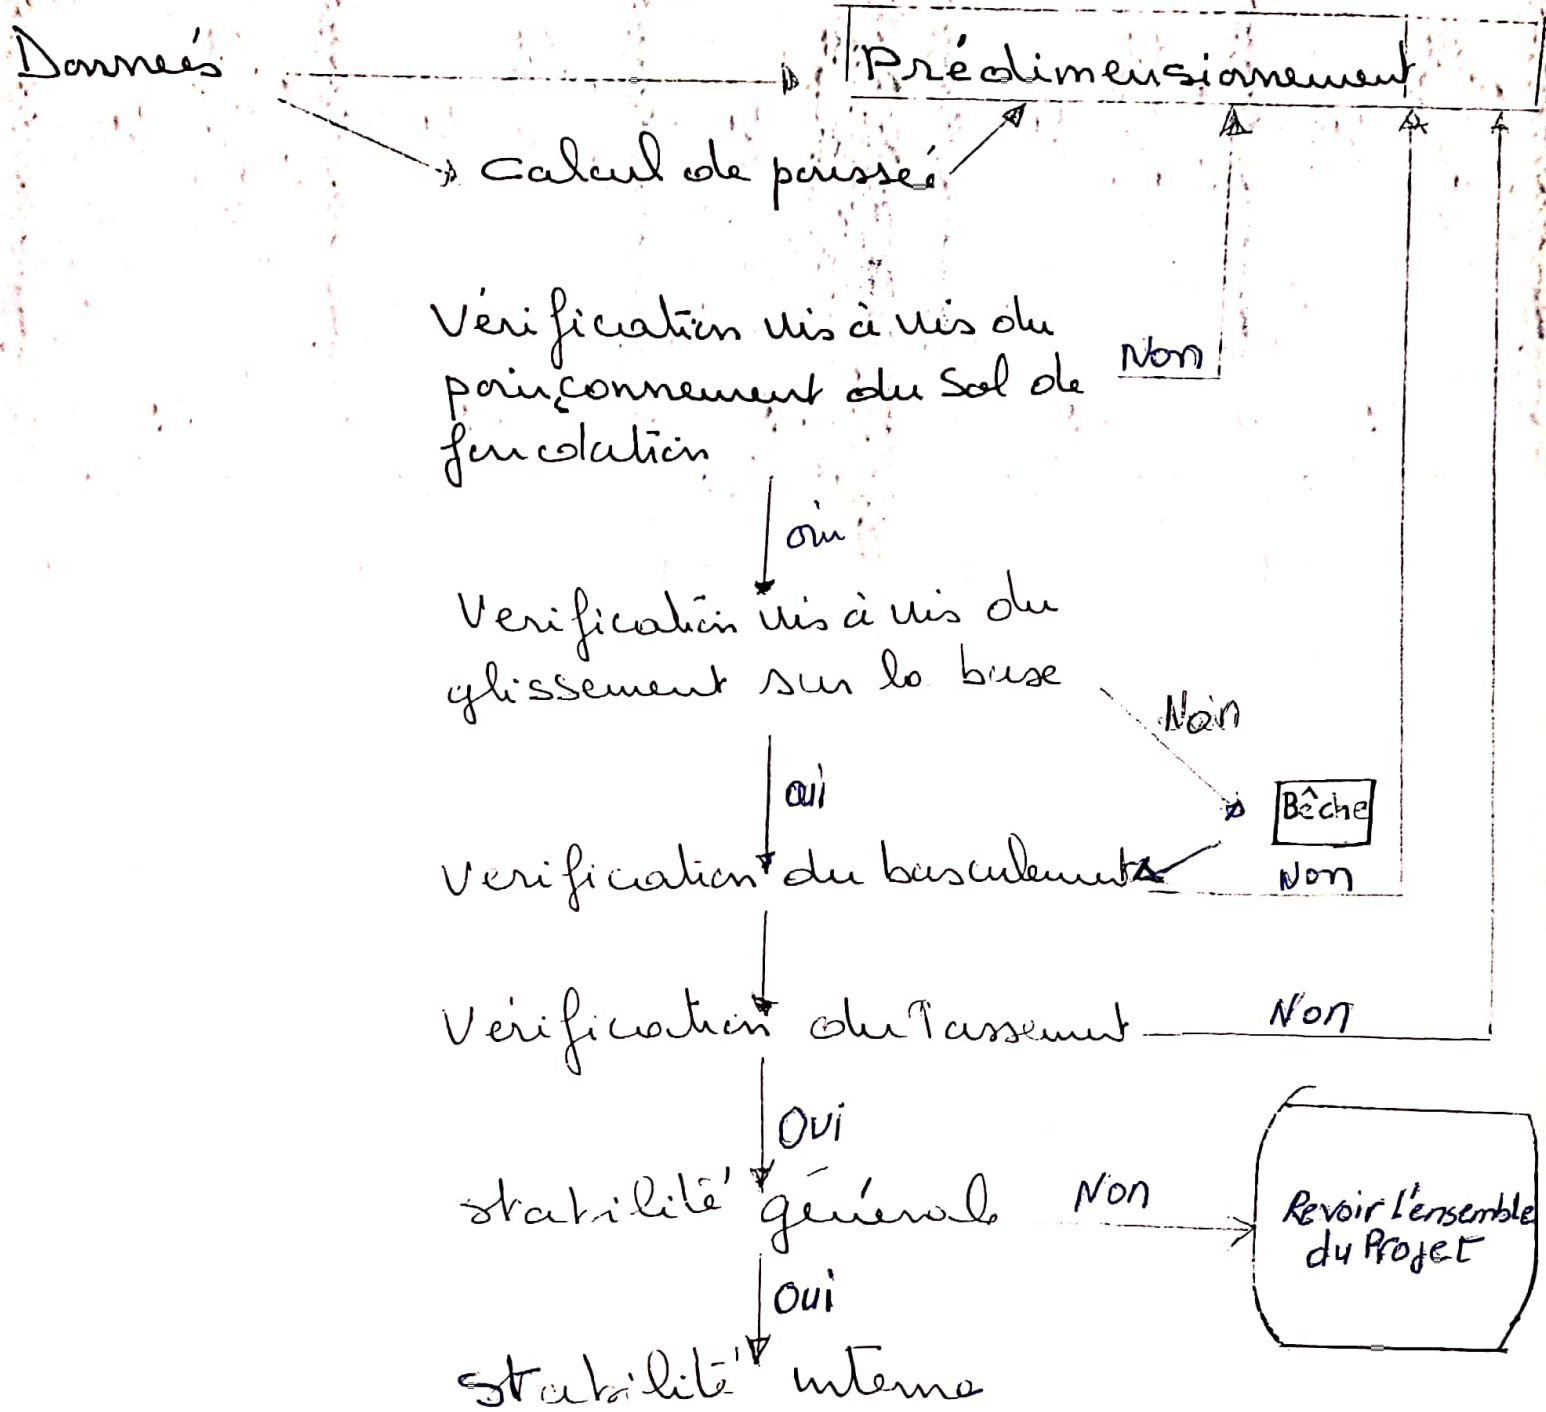 Données
Prédimensionnement
Calcul de poussée
Vérification vis à vis du
poinçonnement du Sol de
fondation
Non
oui
Verification vis à vis du
glissement sur la base
Non
oui
Bêche
Verification du basculement
Non
Vérification du Tassement
Non
Oui
stabilité générale
Non
Revoir l'ensemble
du Projet
Oui
stabilité interne